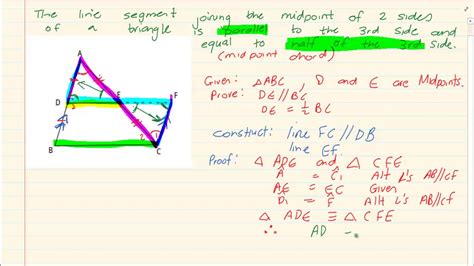 The line segment joining the midpoint of 2 sides
of a triangle is parallel to the 3rd side and
equal to half of the 3rd side.
(midpoint chord)
A
D
E
F
B
C
1
2
1
2
Given: △ABC, D and E are Midpoints.
Prove: DE // BC
DE = ½ BC
construct: line FC // DB
line EF.
Proof: △ ADE and △ CFE
Â = Ĉ₁ Alt L's AB//CF
AE = EC Given
D̂₁ = F̂ Alt L's AB//CF
△ ADE ≡ △ CFE
∴ AD =